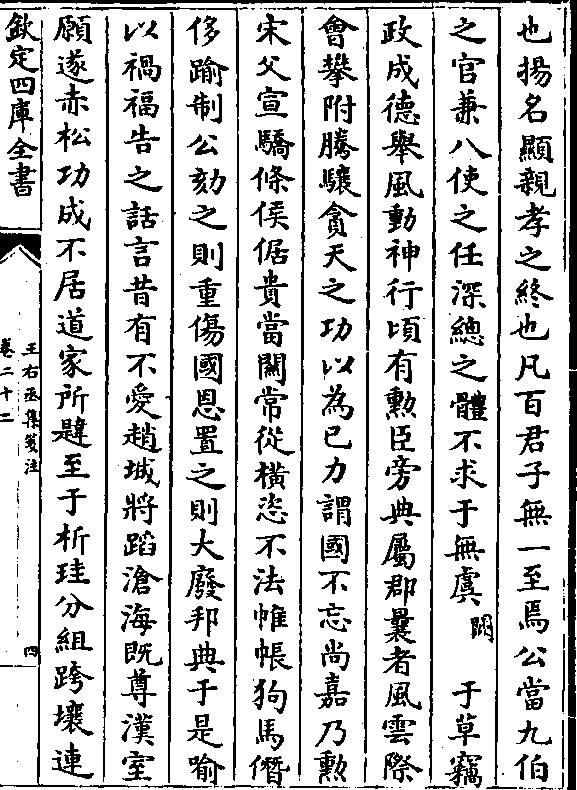 也揚名顯親孝之終也凡百君子無一至焉公當九伯
之官兼八使之任深總之體不求于無虞闕于草竊
政成德舉風動神行頃有勲臣旁典屬郡曩者風雲際
會攀附騰驤貪天之功以為已力謂國不忘尚嘉乃勲
宋父宣驕條侯倨貴當關常從橫恣不法帷帳狗馬僭
侈踰制公劾之則重傷國恩置之則大廢邦典于是喻
以禍福告之話言昔有不愛趙城將蹈滄海既尊漢室
願遂赤松功成不居道家所韙至于析珪分組跨壤連
欽定四庫全書
王右丞集箋注
卷二十二
四